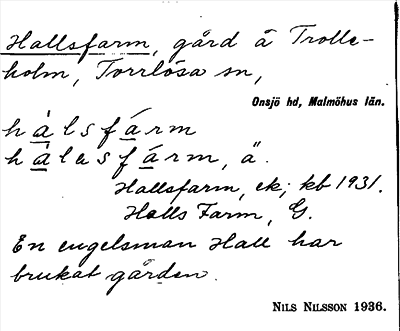 Hallsfarm, gård å Trolle-
holm, Torrlösa sn,
Onsjö hd, Malmöhus län.
hàlsfárm
hàlusfárm, ä.
Hallsfarm, ek; kb 1931.
Halls Farm, G.
En engelsman Hall har
brukat gården.
NILS NILSSON 1936.